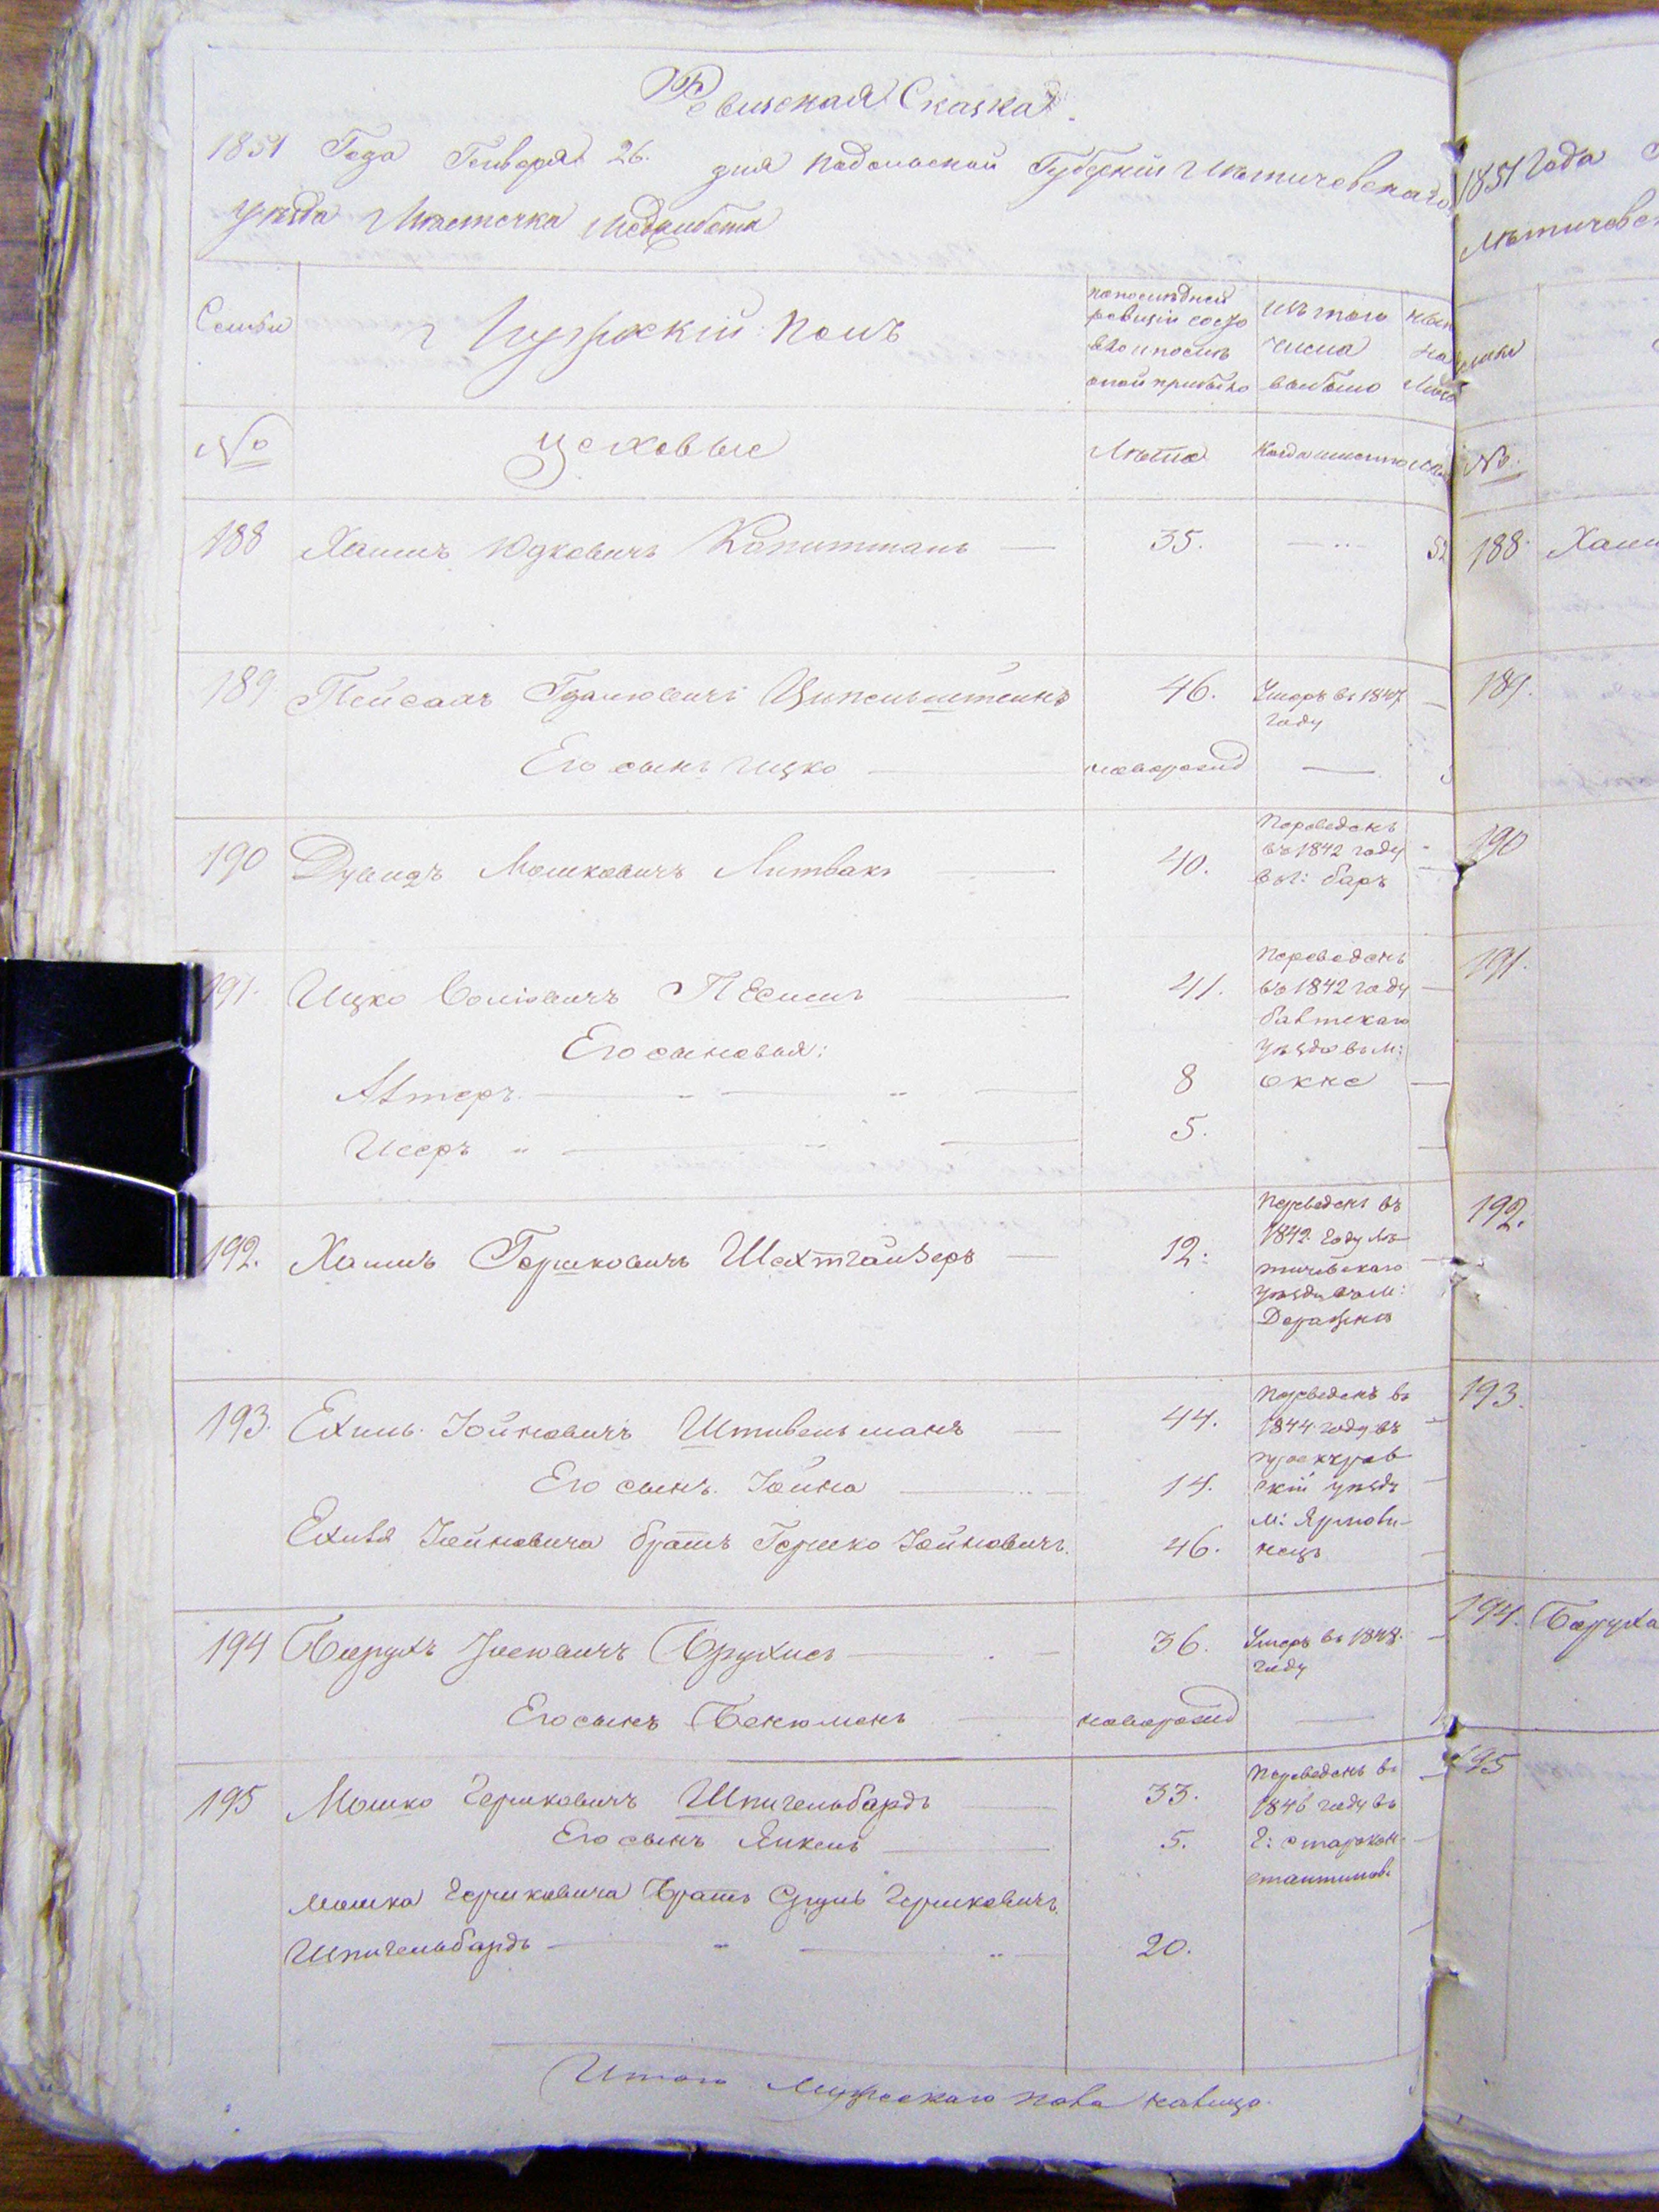 Ревизская Сказка.
1851 Года Генваря 26. дня Подольской Губерніи Летичевскаго
уѣзда Мѣстечка Меджибожа
Семьи
Мужескій Полъ
по послѣдней ревизіи состояло и послѣ оной прибыло
изъ того числа выбыло
№
Цеховые
Лѣта
Когда именно
188 Хаимъ Юдковичъ Капитманъ 35.
189. Пейсахъ Гдалювичъ Ципельштеинъ 46. Умеръ въ 1847 году
Его сынъ Ицко новорожд
190 Дувидъ Мошковичъ Литвакъ 40. Переведенъ въ 1842 году въ г: баръ
191. Ицко 41. Переведенъ въ 1842 году балтскаго уѣзда въ м: окне
Его сыновья:
Алтеръ 8
Исеръ 5.
192. Хаимъ Гершковичъ Шехтгайзеръ 12. Переведенъ въ 1842 году Летичевскаго уѣзда въ м: Деражня
193. Ехиль Іойновичъ Штивельманъ 44. Переведенъ въ 1844 году въ проскуровскій уѣздъ м: Ярмолинецъ
Его сынъ Іойна 14.
Ехиля Іойновича братъ Гершко Іойновичъ. 46.
194 Барухъ Брухисъ 36. Умеръ въ 1848. году
Его сынъ Бенюменъ новорожд
195 Мошко Гершковичъ Шпигельбардъ 33. Переведенъ въ 1846 году въ г: староконстантиновъ
Его сынъ Янкель 5.
Мошка Гершковича Братъ Сруль Гершковичъ
Шпигельбардъ 20.
Итого Мужескаго пола налицо
1851 Года
Летичевс
№.
188. Хаим
189.
190
191.
192.
193.
194. Баруха
195